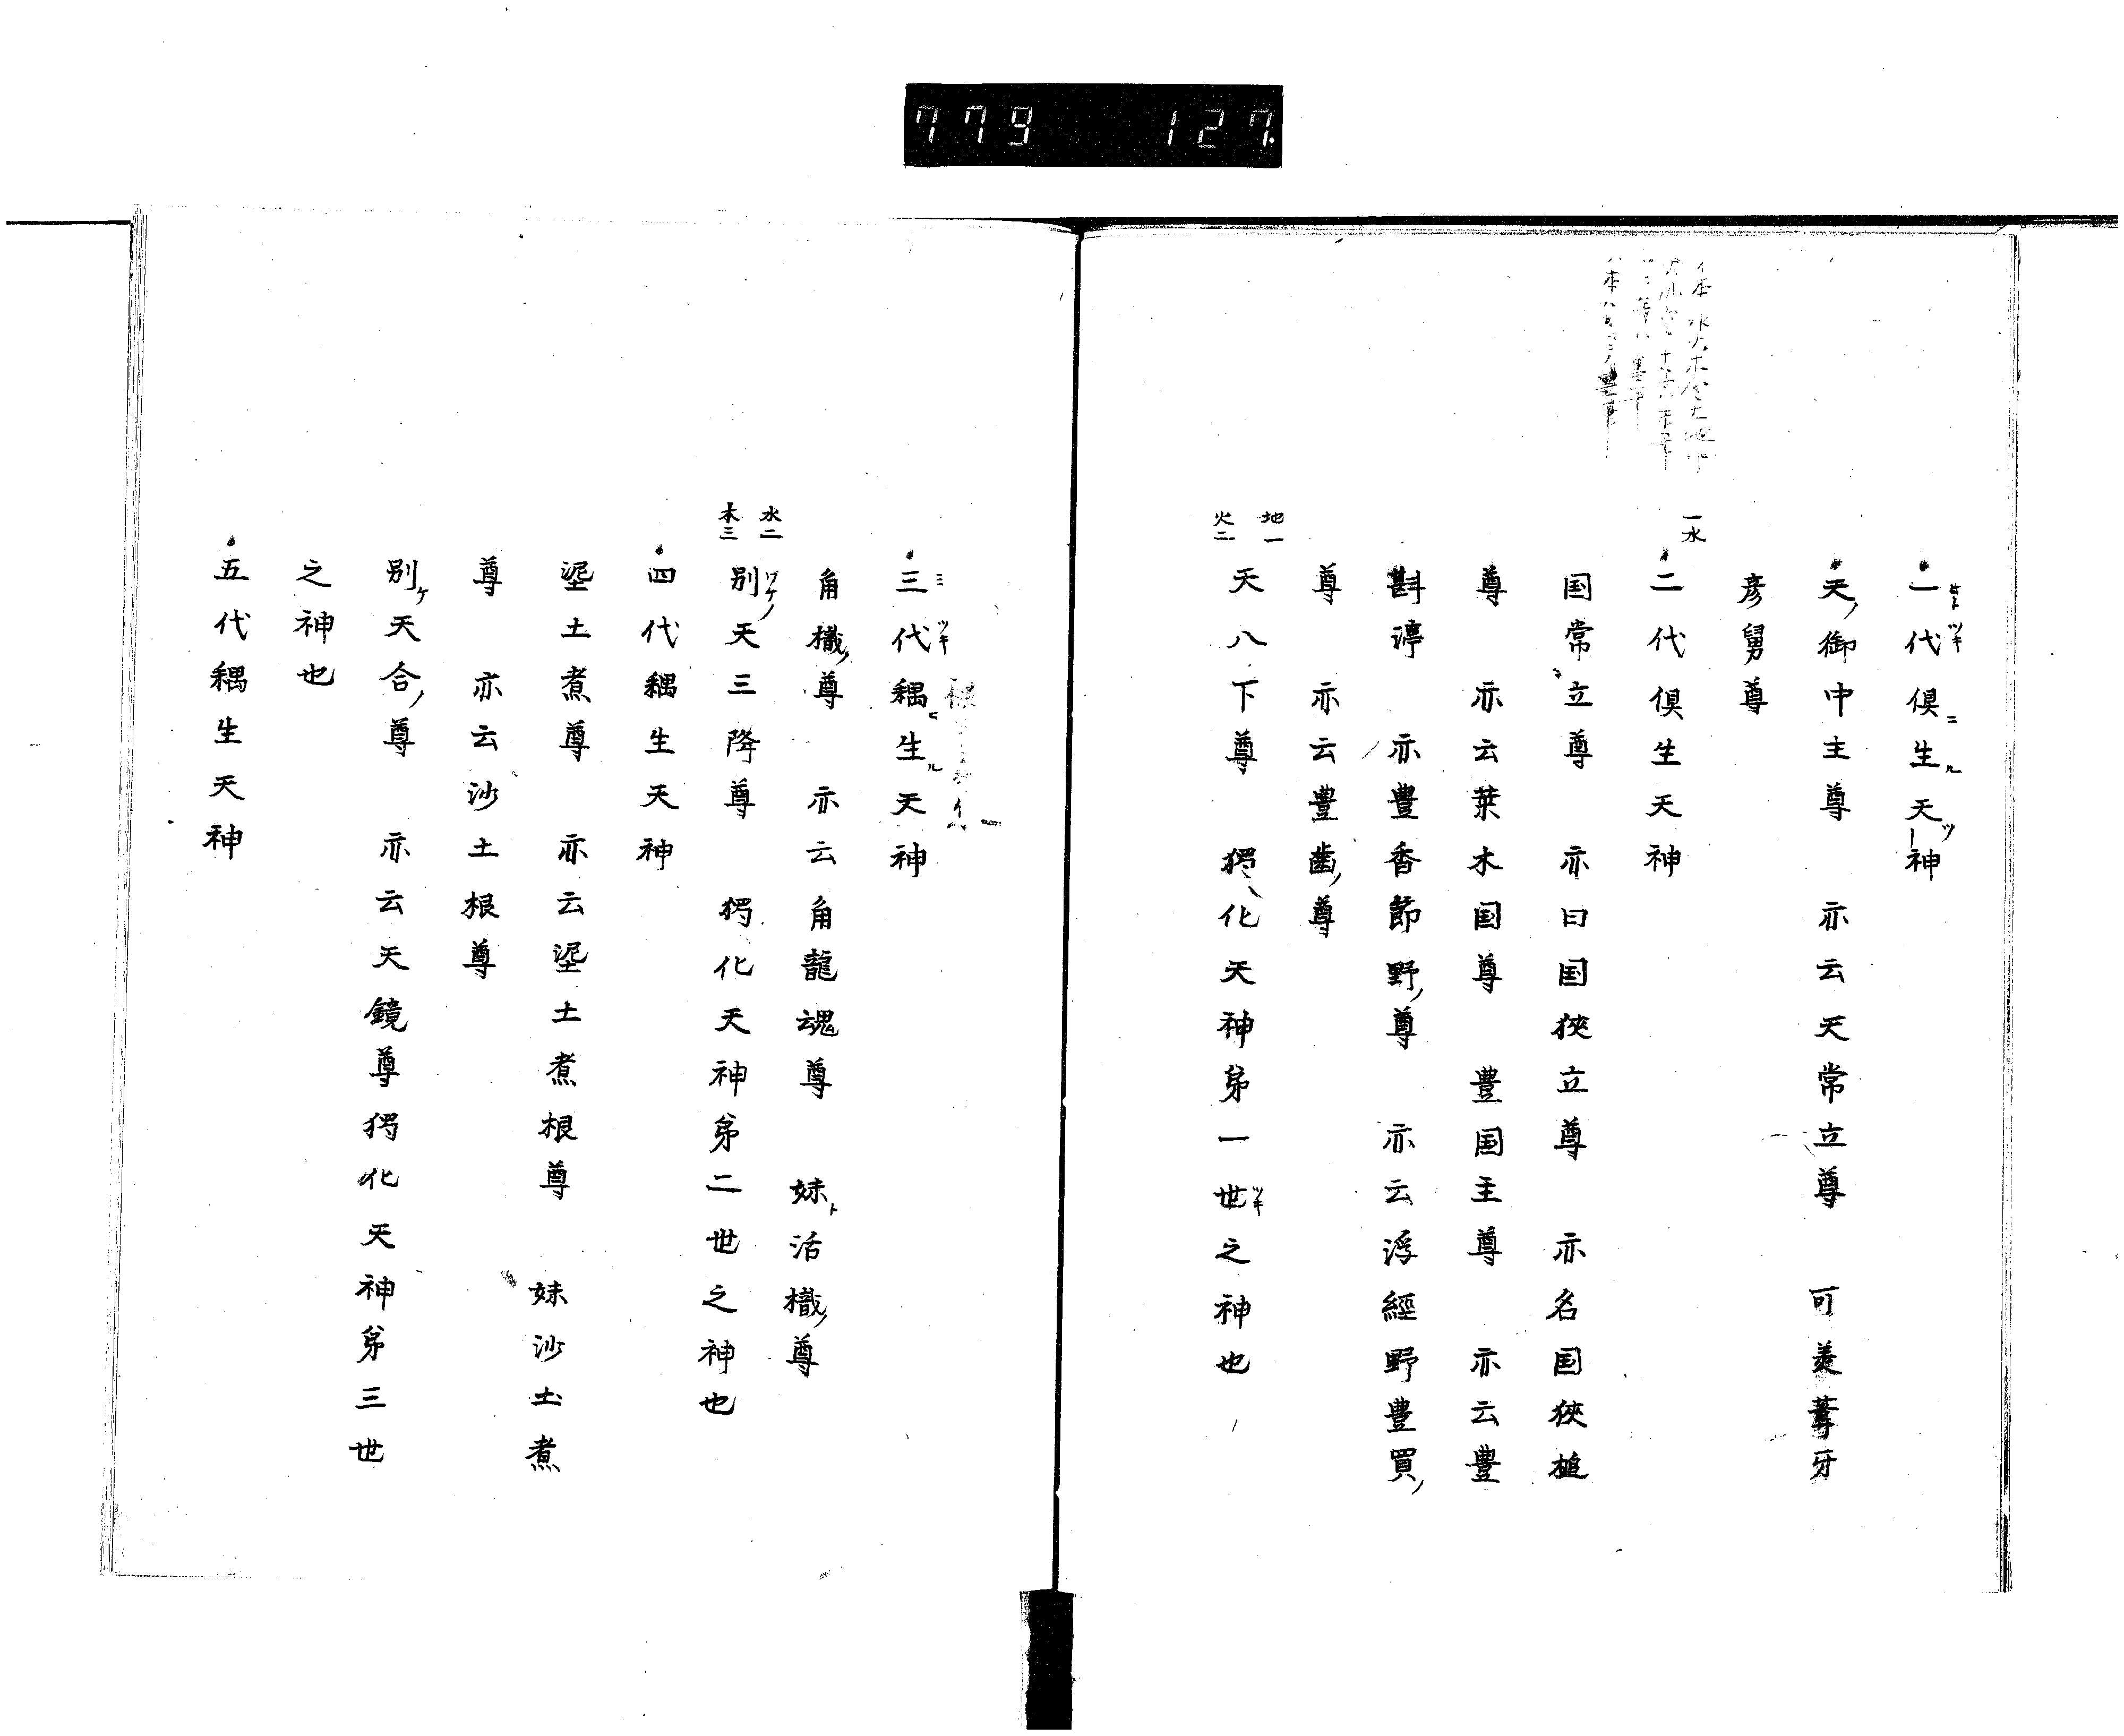 779 127
一代倶生天神
天御中主尊 亦云天常立尊 可美葦牙
彦舅尊
一水
二代倶生天神
国常立尊 亦曰国狭立尊 亦名国狭槌
尊 亦云葉木国尊 豊国主尊 亦云豊
斟渟 亦豊香節野尊 亦云浮經野豊買
尊 亦云豊齒尊
地一
火二
天八下尊 獨化天神第一世之神也
三代耦生天神
角樴尊 亦云角龍魂尊 妹活樴尊
水二
木三
別天三降尊 獨化天神第二世之神也
四代耦生天神
埿土煮尊 亦云埿土煮根尊 妹沙土煮
尊 亦云沙土根尊
別天合尊 亦云天鏡尊獨化天神第三世
之神也
五代耦生天神